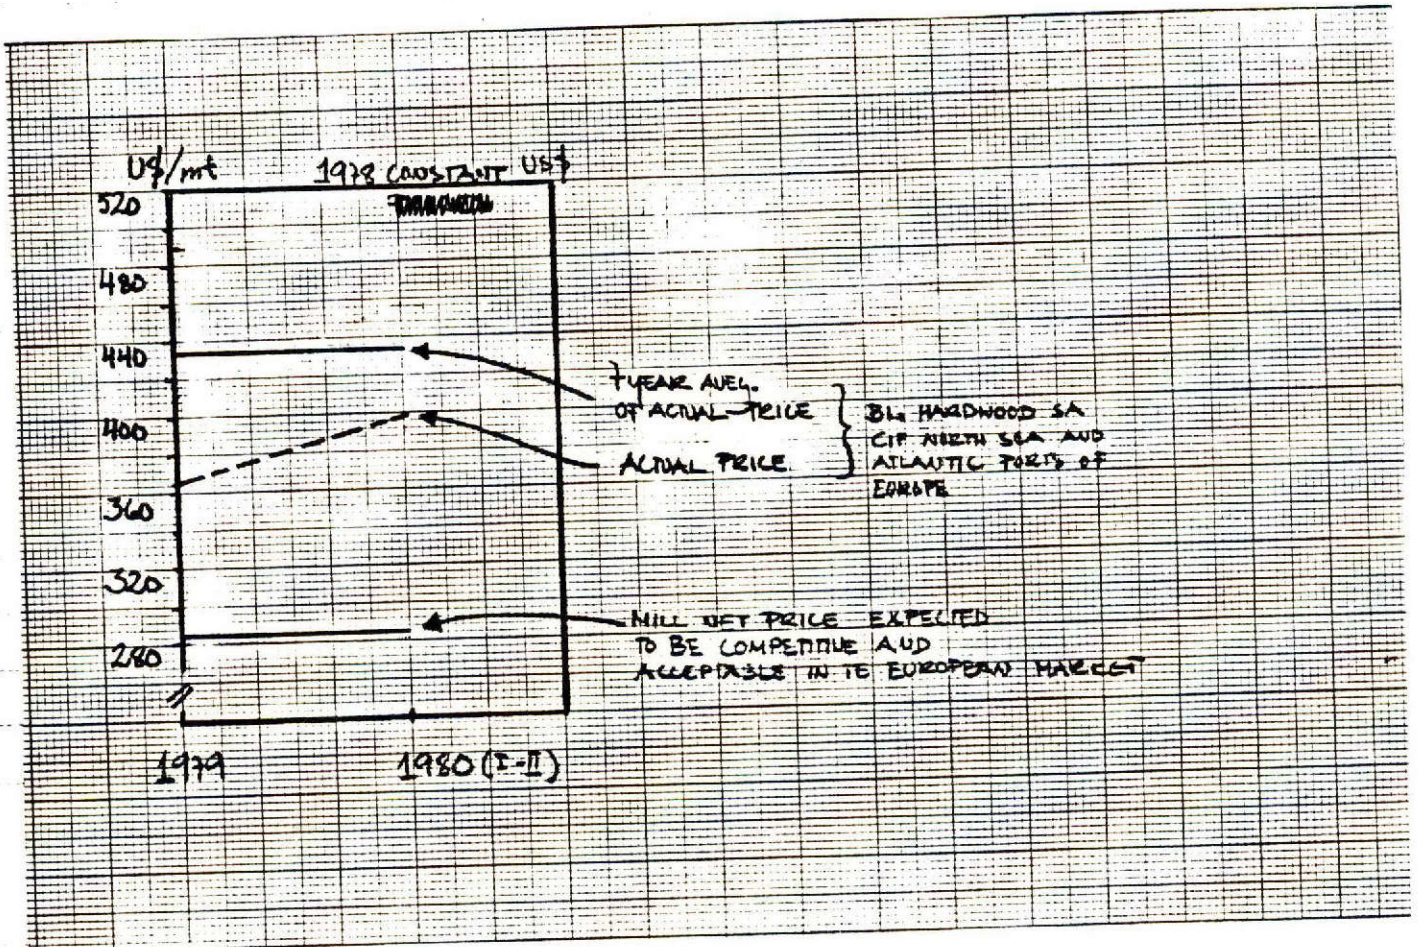 U$/mt
1978 CONSTANT US$
520
480
440
400
360
320
280
1979
1980 (I-II)
7 YEAR AVEG.
OF ACTUAL PRICE
ACTUAL PRICE
BL. HARDWOOD SA
CIF NORTH SEA AND
ATLANTIC PORTS OF
EUROPE
MILL NET PRICE EXPECTED
TO BE COMPETITIVE AND
ACCEPTABLE IN TE EUROPEAN MARKET